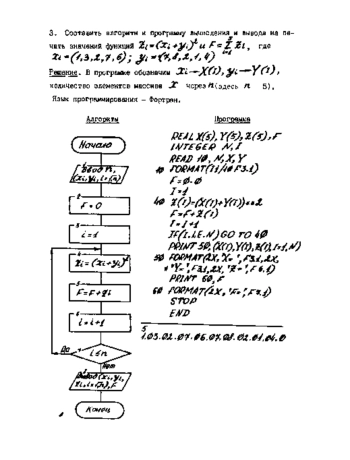 3. Составить алгоритм и программу вычисления и вывода на пе-
чать значений функций Zi=(xi+yi)² и F=Σ Zi, где
xi=(1,3,2,7,6); yi=(7,8,2,1,4)
Решение. В программе обозначим xi→X(I), yi→Y(I),
количество элементов массивов X через n (здесь n 5).
Язык программирования - Фортран.
Алгоритм Программа
Начало
Ввод n,
(xi,yi,i=1,n)
F=0
i=1
Zi=(xi+yi)²
F=F+Zi
i=i+1
Да i≤n
Нет
Вывод (xi,yi,
zi,i=1,n),F
Конец
REAL X(5),Y(5),Z(5),F
INTEGER N,I
READ 10,N,X,Y
10 FORMAT(I1/10F3.1)
F=0.0
I=1
40 Z(I)=(X(I)+Y(I))**2
F=F+Z(I)
I=I+1
IF(I.LE.N) GO TO 40
PRINT 50,(X(I),Y(I),Z(I),I=1,N)
50 FORMAT(2X,'X=',F3.1,2X,
*'Y=',F3.1,2X,'Z=',F6.1)
PRINT 60,F
60 FORMAT(2X,'F=',F7.1)
STOP
END
5
1.03.02.07.06.07.08.02.01.04.0